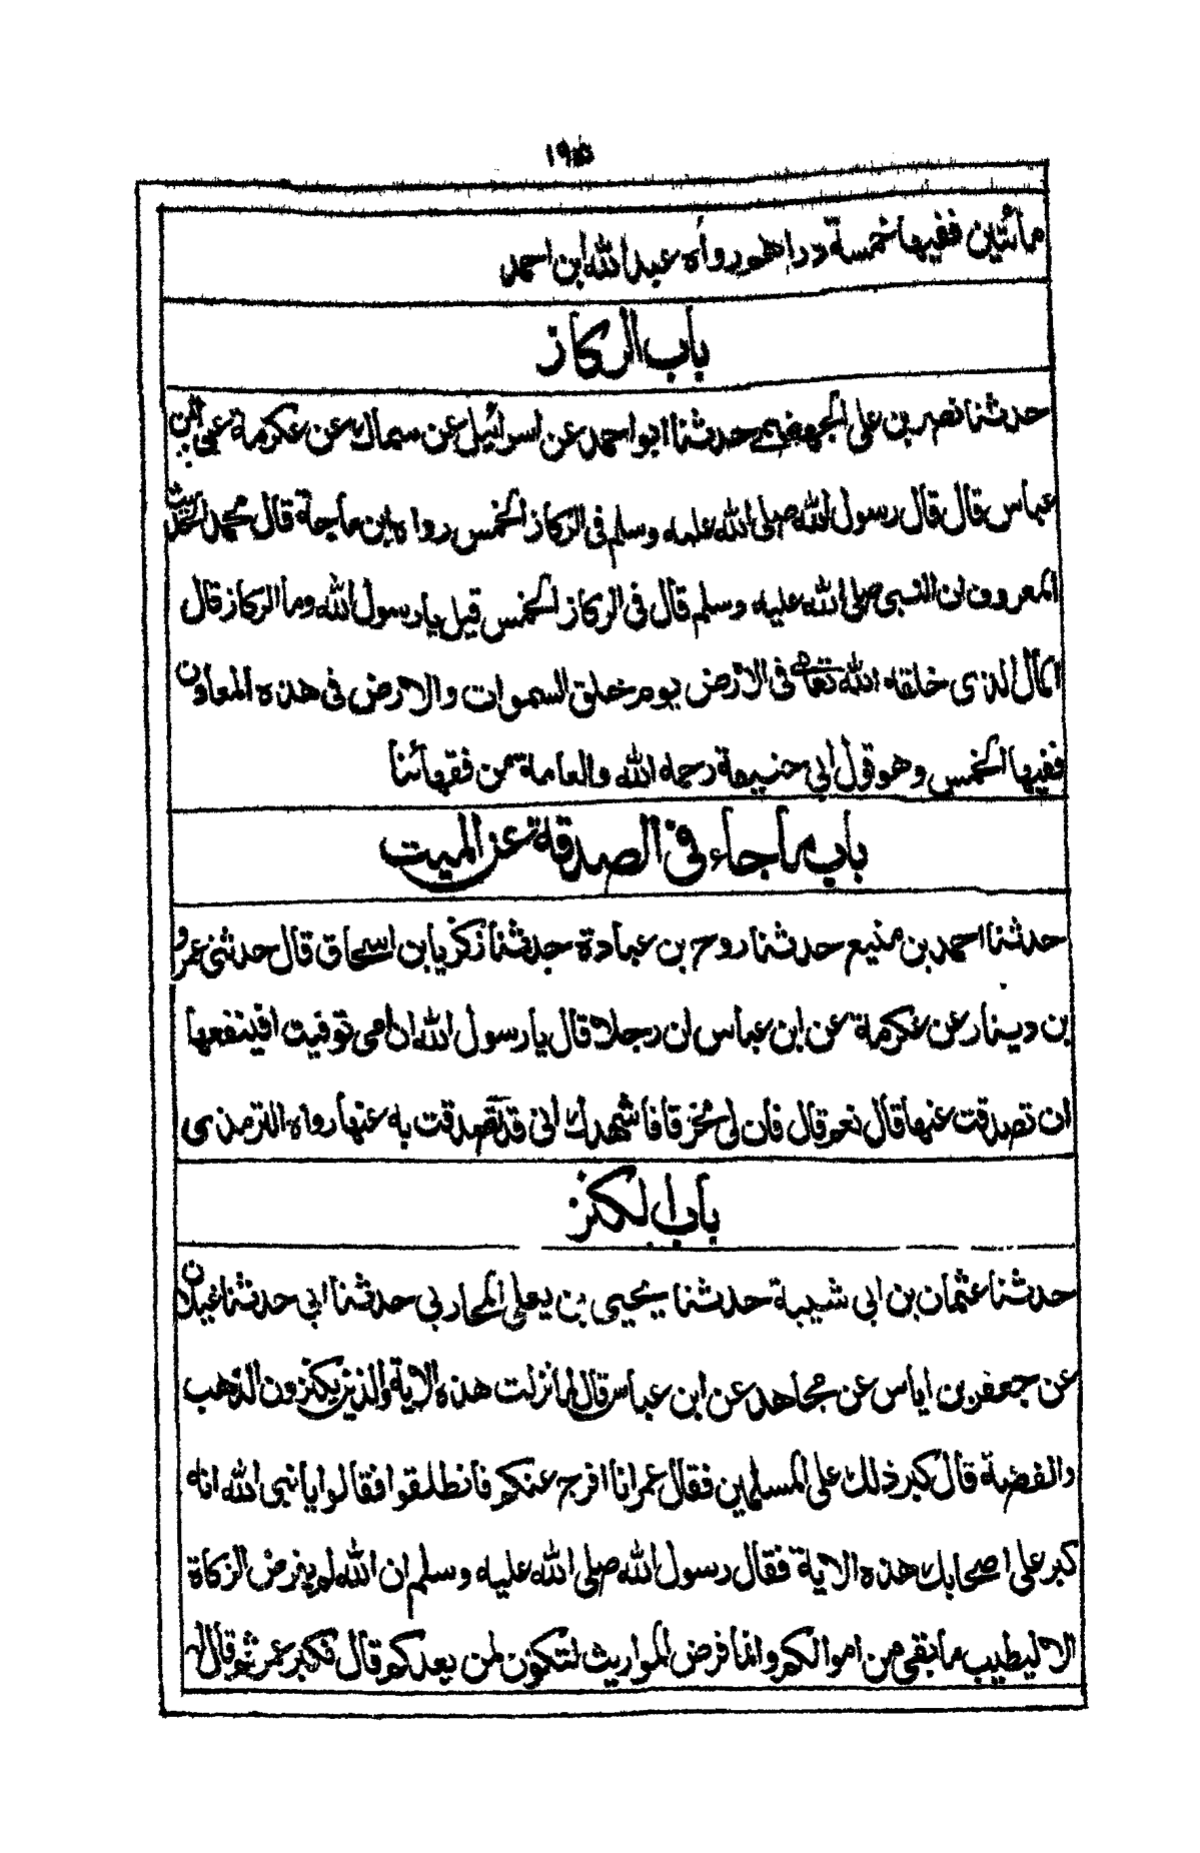 مائتين ففيها خمسة دراهم رواه عبد الله ابن احمد
باب الركاز
حدثنا نصر بن على الجهضمى حدثنا ابو احمد عن اسرائيل عن سماك عن عكرمة عن ابن
عباس قال قال رسول الله صلى الله عليه وسلم فى الركاز الخمس رواه ابن ماجة قال محمد الحديث
المعروف ان النبى صلى الله عليه وسلم قال فى الركاز الخمس قيل يا رسول الله وما الركاز قال
المال الذى خلقه الله تعالى فى الارض يوم خلق السموات والارض فى هذه المعادن
ففيها الخمس وهو قول ابى حنيفة رحمه الله والعامة من فقهائنا
باب ما جاء فى الصدقة عن الميت
حدثنا احمد بن منيع حدثنا روح بن عبادة حدثنا زكريا بن اسحاق قال حدثنى عمرو
بن دينار عن عكرمة عن ابن عباس ان رجلا قال يا رسول الله ان امى توفيت افينفعها
ان تصدقت عنها قال نعم قال فان لى مخرفا فاشهدك انى قد تصدقت به عنها رواه الترمذى
باب الكنز
حدثنا عثمان بن ابى شيبة حدثنا يحيى بن يعلى المحاربى حدثنا ابى حدثنا غيلان
عن جعفر بن اياس عن مجاهد عن ابن عباس قال لما نزلت هذه الاية والذين يكنزون الذهب
والفضة قال كبر ذلك على المسلمين فقال عمر انا افرج عنكم فانطلقوا فقالوا يا نبى الله انه
كبر على اصحابك هذه الاية فقال رسول الله صلى الله عليه وسلم ان الله لم يفرض الزكاة
الا ليطيب ما بقى من اموالكم وانما فرض المواريث لتكون لمن بعدكم قال فكبر عمر ثم قال له